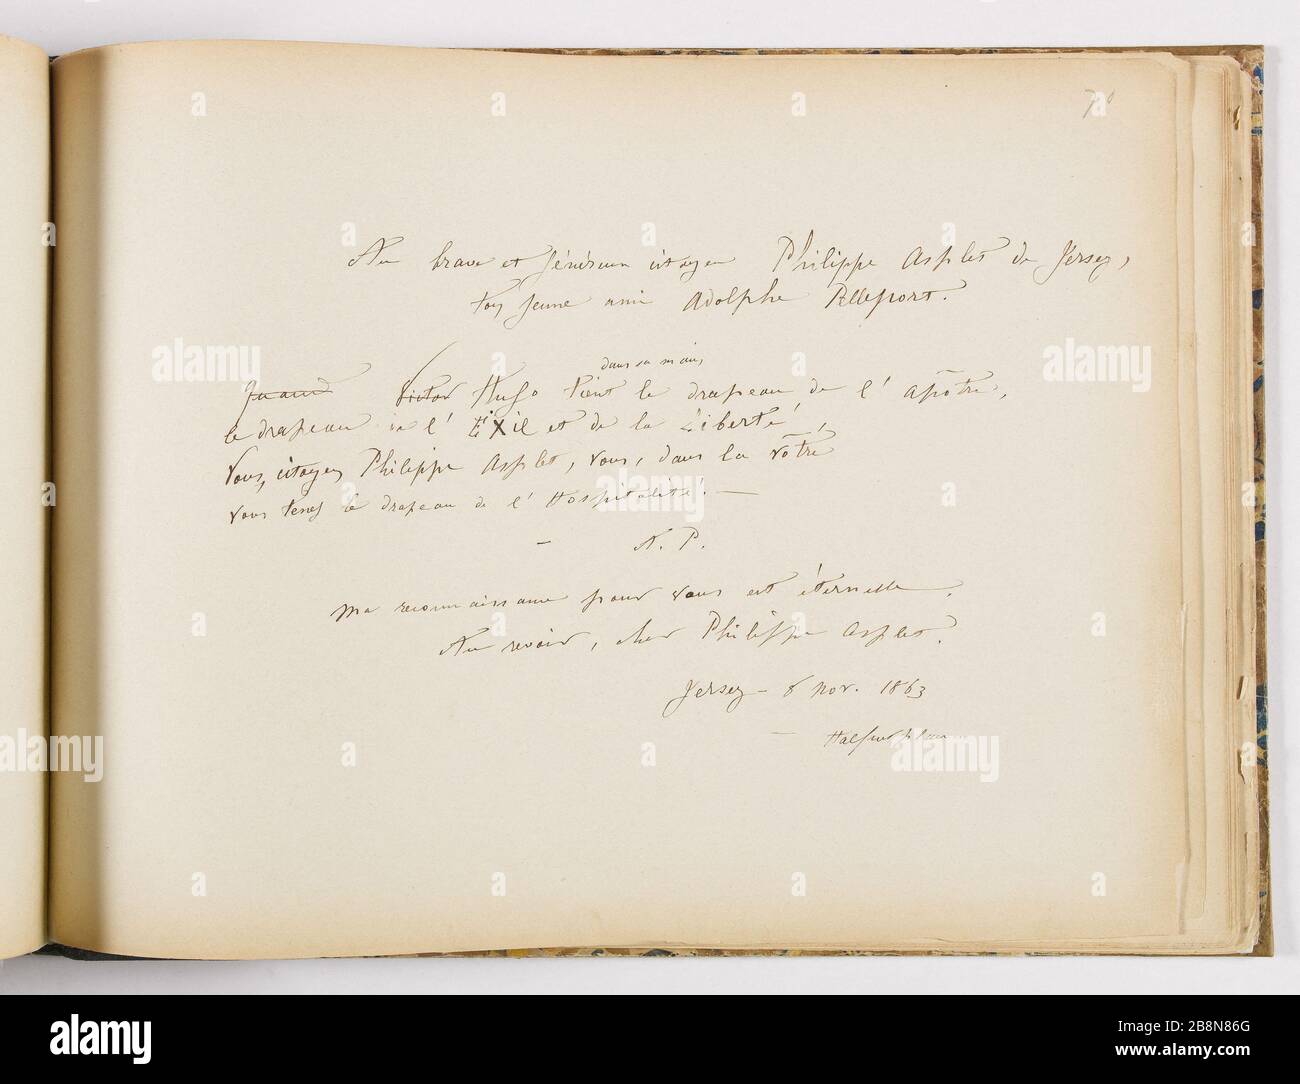 70
Au brave et généreux citoyen Philippe Asplet de Jersey,
son jeune ami Adolphe Pelleport.
dans sa main,
Quand Victor Hugo tient le drapeau de l'apôtre,
le drapeau de l'Exil et de la Liberté,
Vous, citoyen Philippe Asplet, vous, dans la vôtre
vous tenez le drapeau de l'Hospitalité! —
— A. P.
Ma reconnaissance pour vous est éternelle.
Au revoir, cher Philippe Asplet.
Jersey — 8 nov. 1863
—
alamy
alamy
alamy
alamy
alamy
alamy
alamy
2B8N86G
www.alamy.com